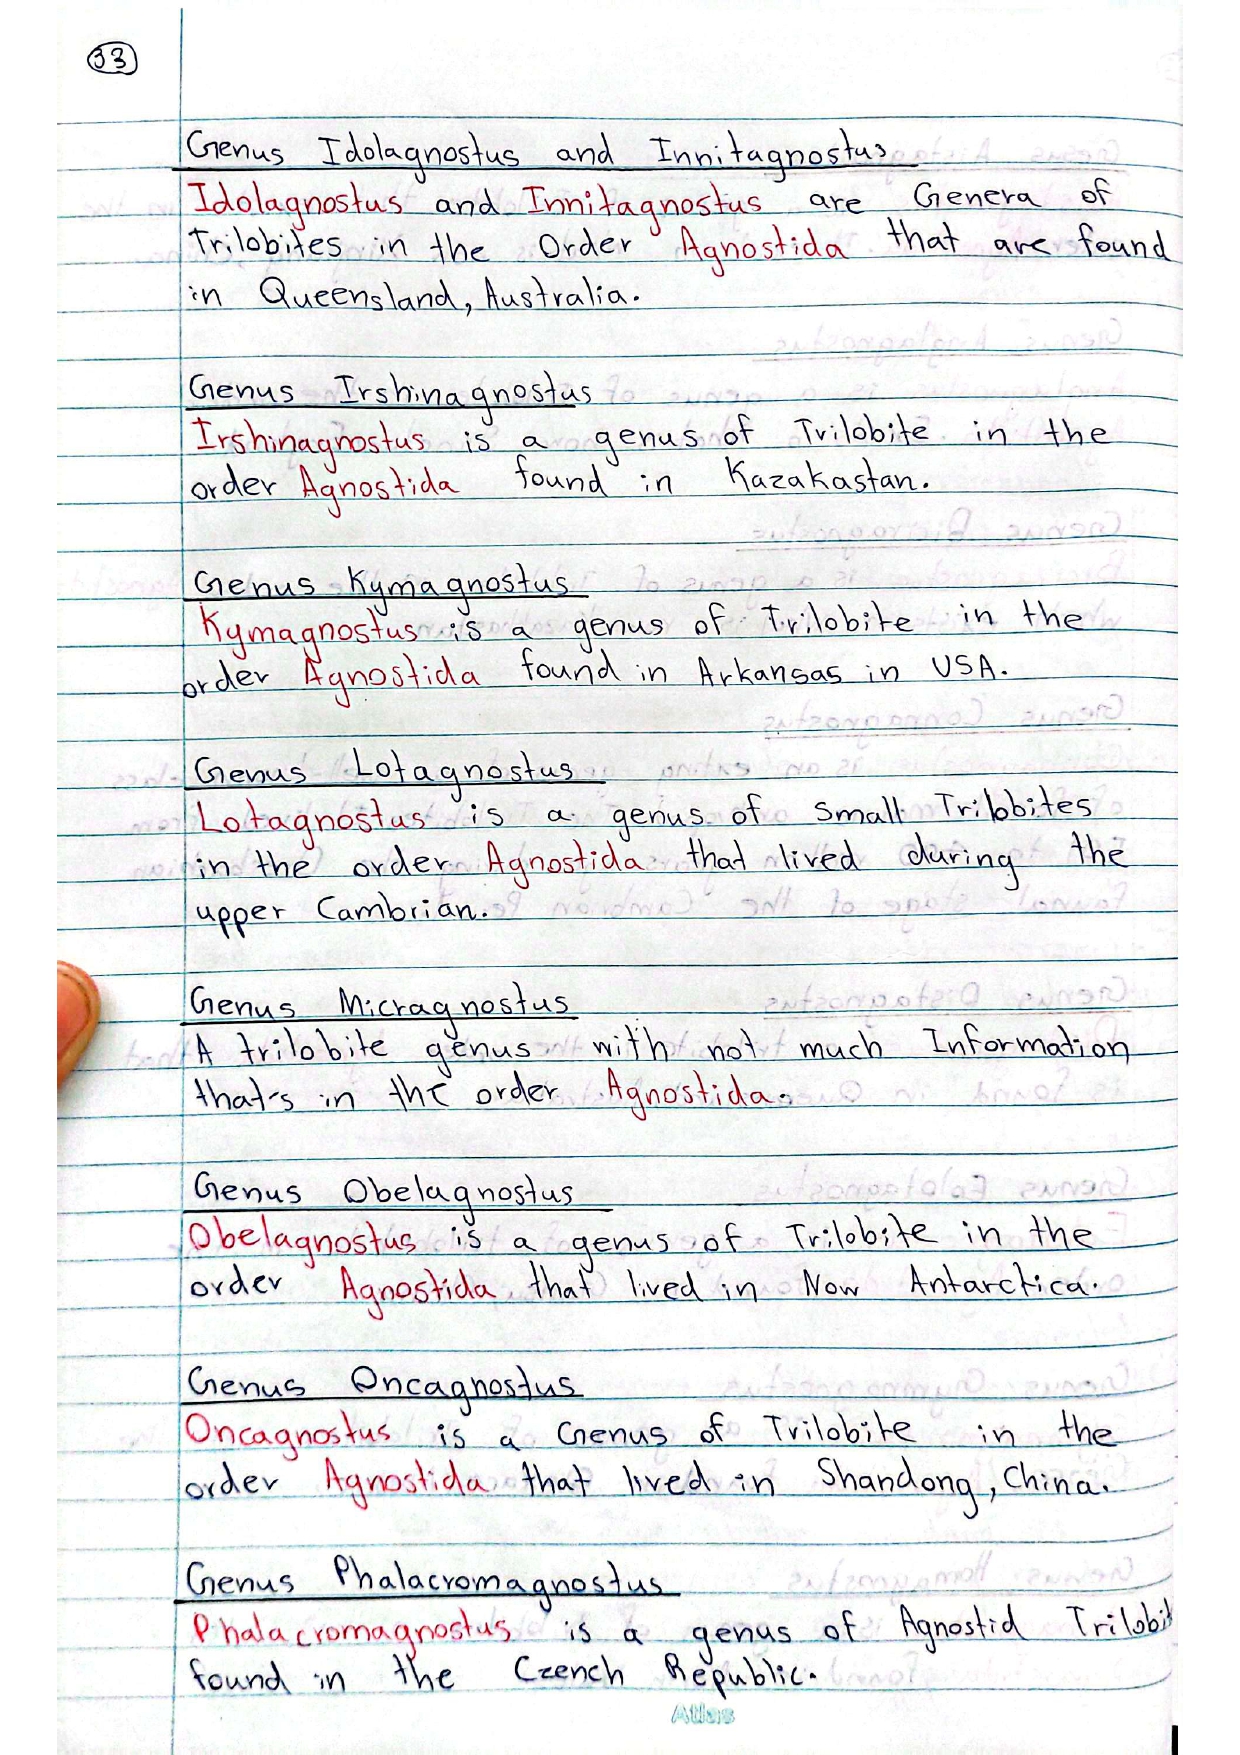 33
Genus Idolagnostus and Innitagnostus
Idolagnostus and Innitagnostus are Genera of
Trilobites in the Order Agnostida that are found
in Queensland, Australia.
Genus Irshinagnostus
Irshinagnostus is a genus of Trilobite in the
order Agnostida found in Kazakastan.
Genus Kymagnostus
Kymagnostus is a genus of Trilobite in the
order Agnostida found in Arkansas in USA.
Genus Lotagnostus
Lotagnostus is a genus of small Trilobites
in the order Agnostida that lived during the
upper Cambrian.
Genus Micragnostus
A trilobite genus with not much Information
that's in the order Agnostida.
Genus Obelagnostus
Obelagnostus is a genus of Trilobite in the
order Agnostida that lived in Now Antarctica.
Genus Oncagnostus
Oncagnostus is a Genus of Trilobite in the
order Agnostida that lived in Shandong, China.
Genus Phalacromagnostus
Phalacromagnostus is a genus of Agnostid Trilobit
found in the Czench Republic.
Atlas